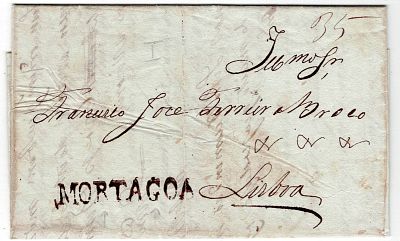 35
Illmo Sr.
Francisco Joze Ferreira Braco
MORTAGOA Lisboa